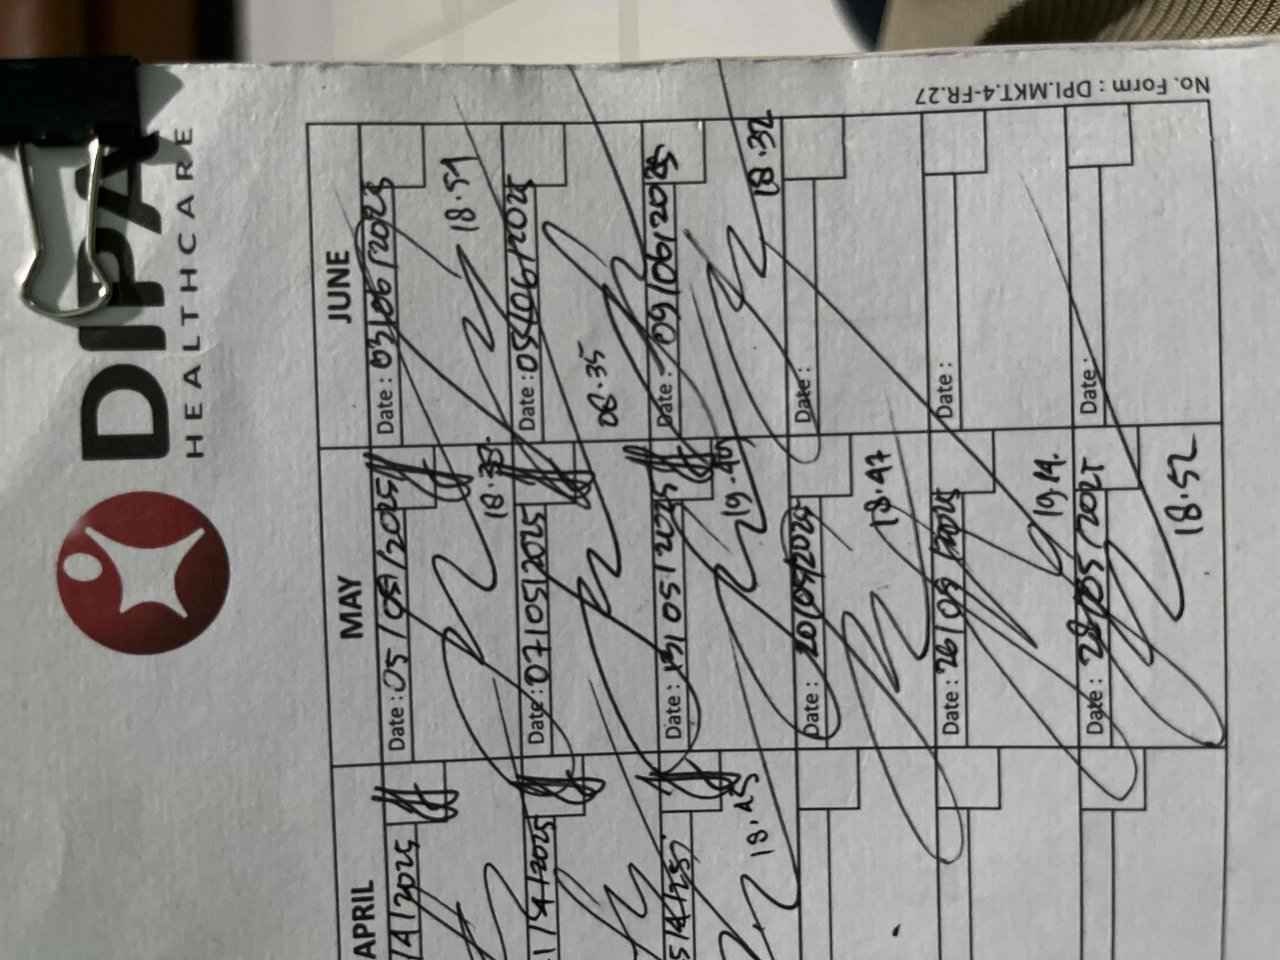 DIPA
HEALTHCARE
No. Form : DPI.MKT.4-FR.27
APRIL
/4/2025
1/4/2025
5/4/25
18.45
MAY
Date : 05/05/2025
Date : 07/05/2025
Date : 13/05/2025
19.40
Date : 20/05/2025
18.47
Date : 26/05/2025
19.14.
Date : 28/05/2025
18.52
JUNE
Date : 03/06/2025
18.59
Date : 05/06/2025
08.35
Date : 09/06/2025
18.32
Date :
Date :
Date :